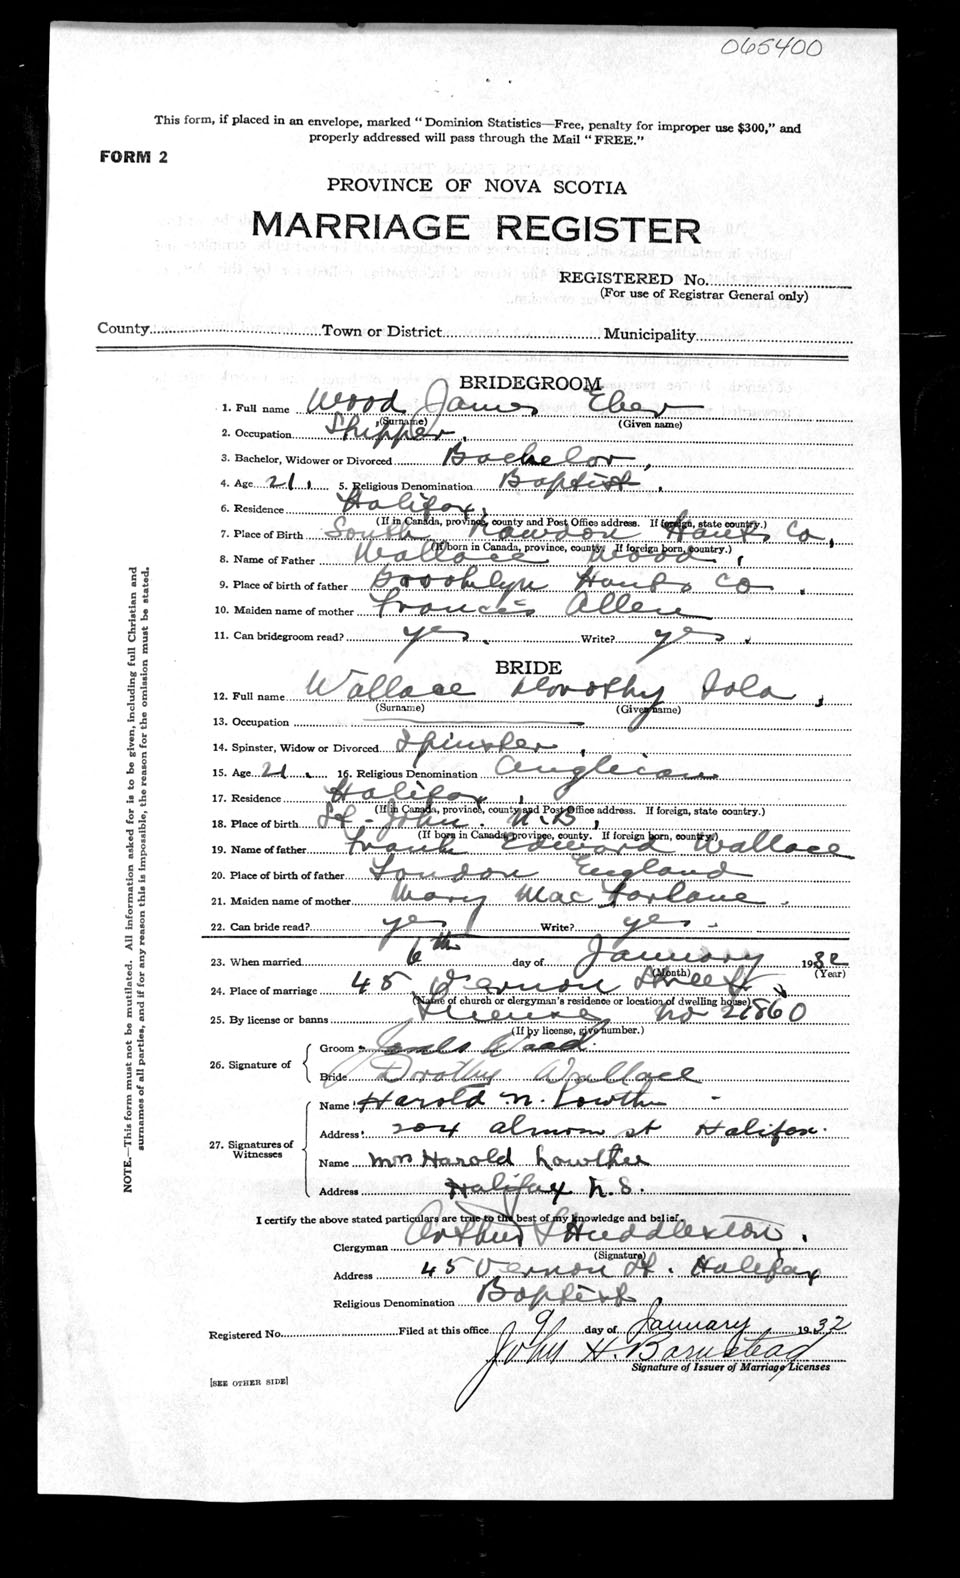 065400
This form, if placed in an envelope, marked "Dominion Statistics—Free, penalty for improper use $300," and
properly addressed will pass through the Mail "FREE."
FORM 2
PROVINCE OF NOVA SCOTIA
MARRIAGE REGISTER
REGISTERED No.
(For use of Registrar General only)
County Town or District Municipality
BRIDEGROOM
1. Full name Wood James Eber
(Surname) (Given name)
2. Occupation Shipper.
3. Bachelor, Widower or Divorced Bachelor,
4. Age 21. 5. Religious Denomination Baptist.
6. Residence Halifax,
(If in Canada, province, county and Post Office address. If foreign, state country.)
7. Place of Birth South Rawdon Hants Co,
(If born in Canada, province, county. If foreign born, country.)
8. Name of Father Wallace Wood,
9. Place of birth of father Brooklyn Hants Co.
10. Maiden name of mother Frances Allen
11. Can bridegroom read? yes. Write? yes.
BRIDE
12. Full name Wallace Dorothy Iola,
(Surname) (Given name)
13. Occupation
14. Spinster, Widow or Divorced Spinster,
15. Age 21. 16. Religious Denomination Anglican
17. Residence Halifax,
(If in Canada, province, county and Post Office address. If foreign, state country.)
18. Place of birth St-John. N.B,
(If born in Canada, province, county. If foreign born, country.)
19. Name of father Frank Edward Wallace
20. Place of birth of father London England
21. Maiden name of mother Mary MacFarlane.
22. Can bride read? yes Write? yes-
23. When married 6th day of January 1932
(Month) (Year)
24. Place of marriage 45 Vernon Street
(Name of church or clergyman's residence or location of dwelling house)
25. By license or banns License No 21860
(If by license, give number.)
26. Signature of
Groom James Wood.
Bride Dorothy Wallace
27. Signatures of Witnesses
Name Harold N. Lowther
Address 204 Almon St Halifax.
Name Mrs Harold Lowther
Address Halifax N.S.
I certify the above stated particulars are true to the best of my knowledge and belief.
Clergyman Arthur S Huddleston.
(Signature)
Address 45 Vernon St. Halifax
Religious Denomination Baptist
Registered No. Filed at this office 9 day of January 1932
John H. Barnstead
Signature of Issuer of Marriage Licenses
[SEE OTHER SIDE]
NOTE.—This form must not be mutilated. All information asked for is to be given, including full Christian and
surnames of all parties, and if for any reason this is impossible, the reason for the omission must be stated.